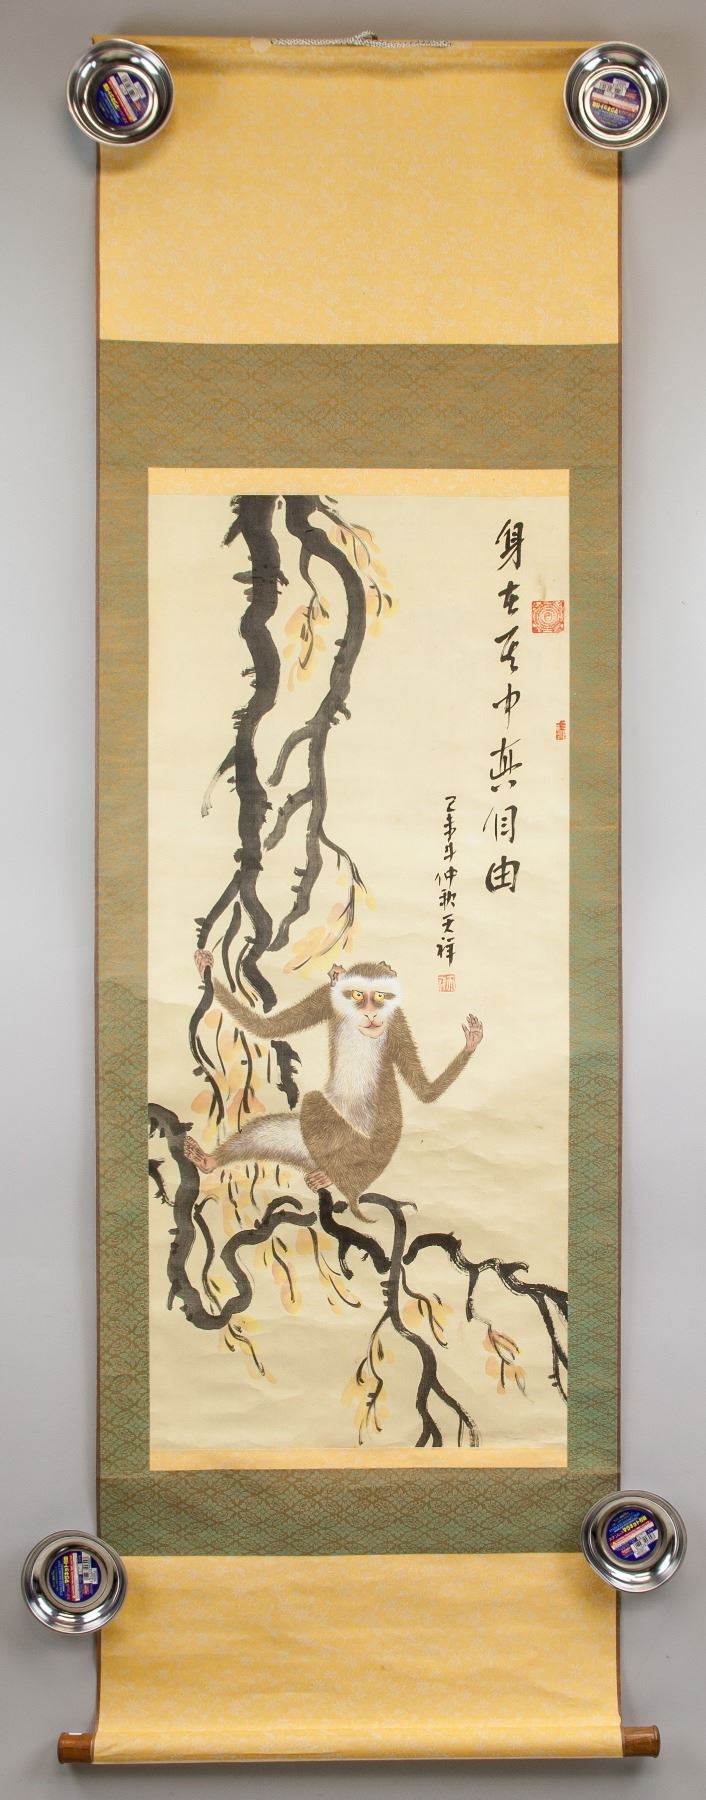 身在其中真自由
乙未年仲秋天祥